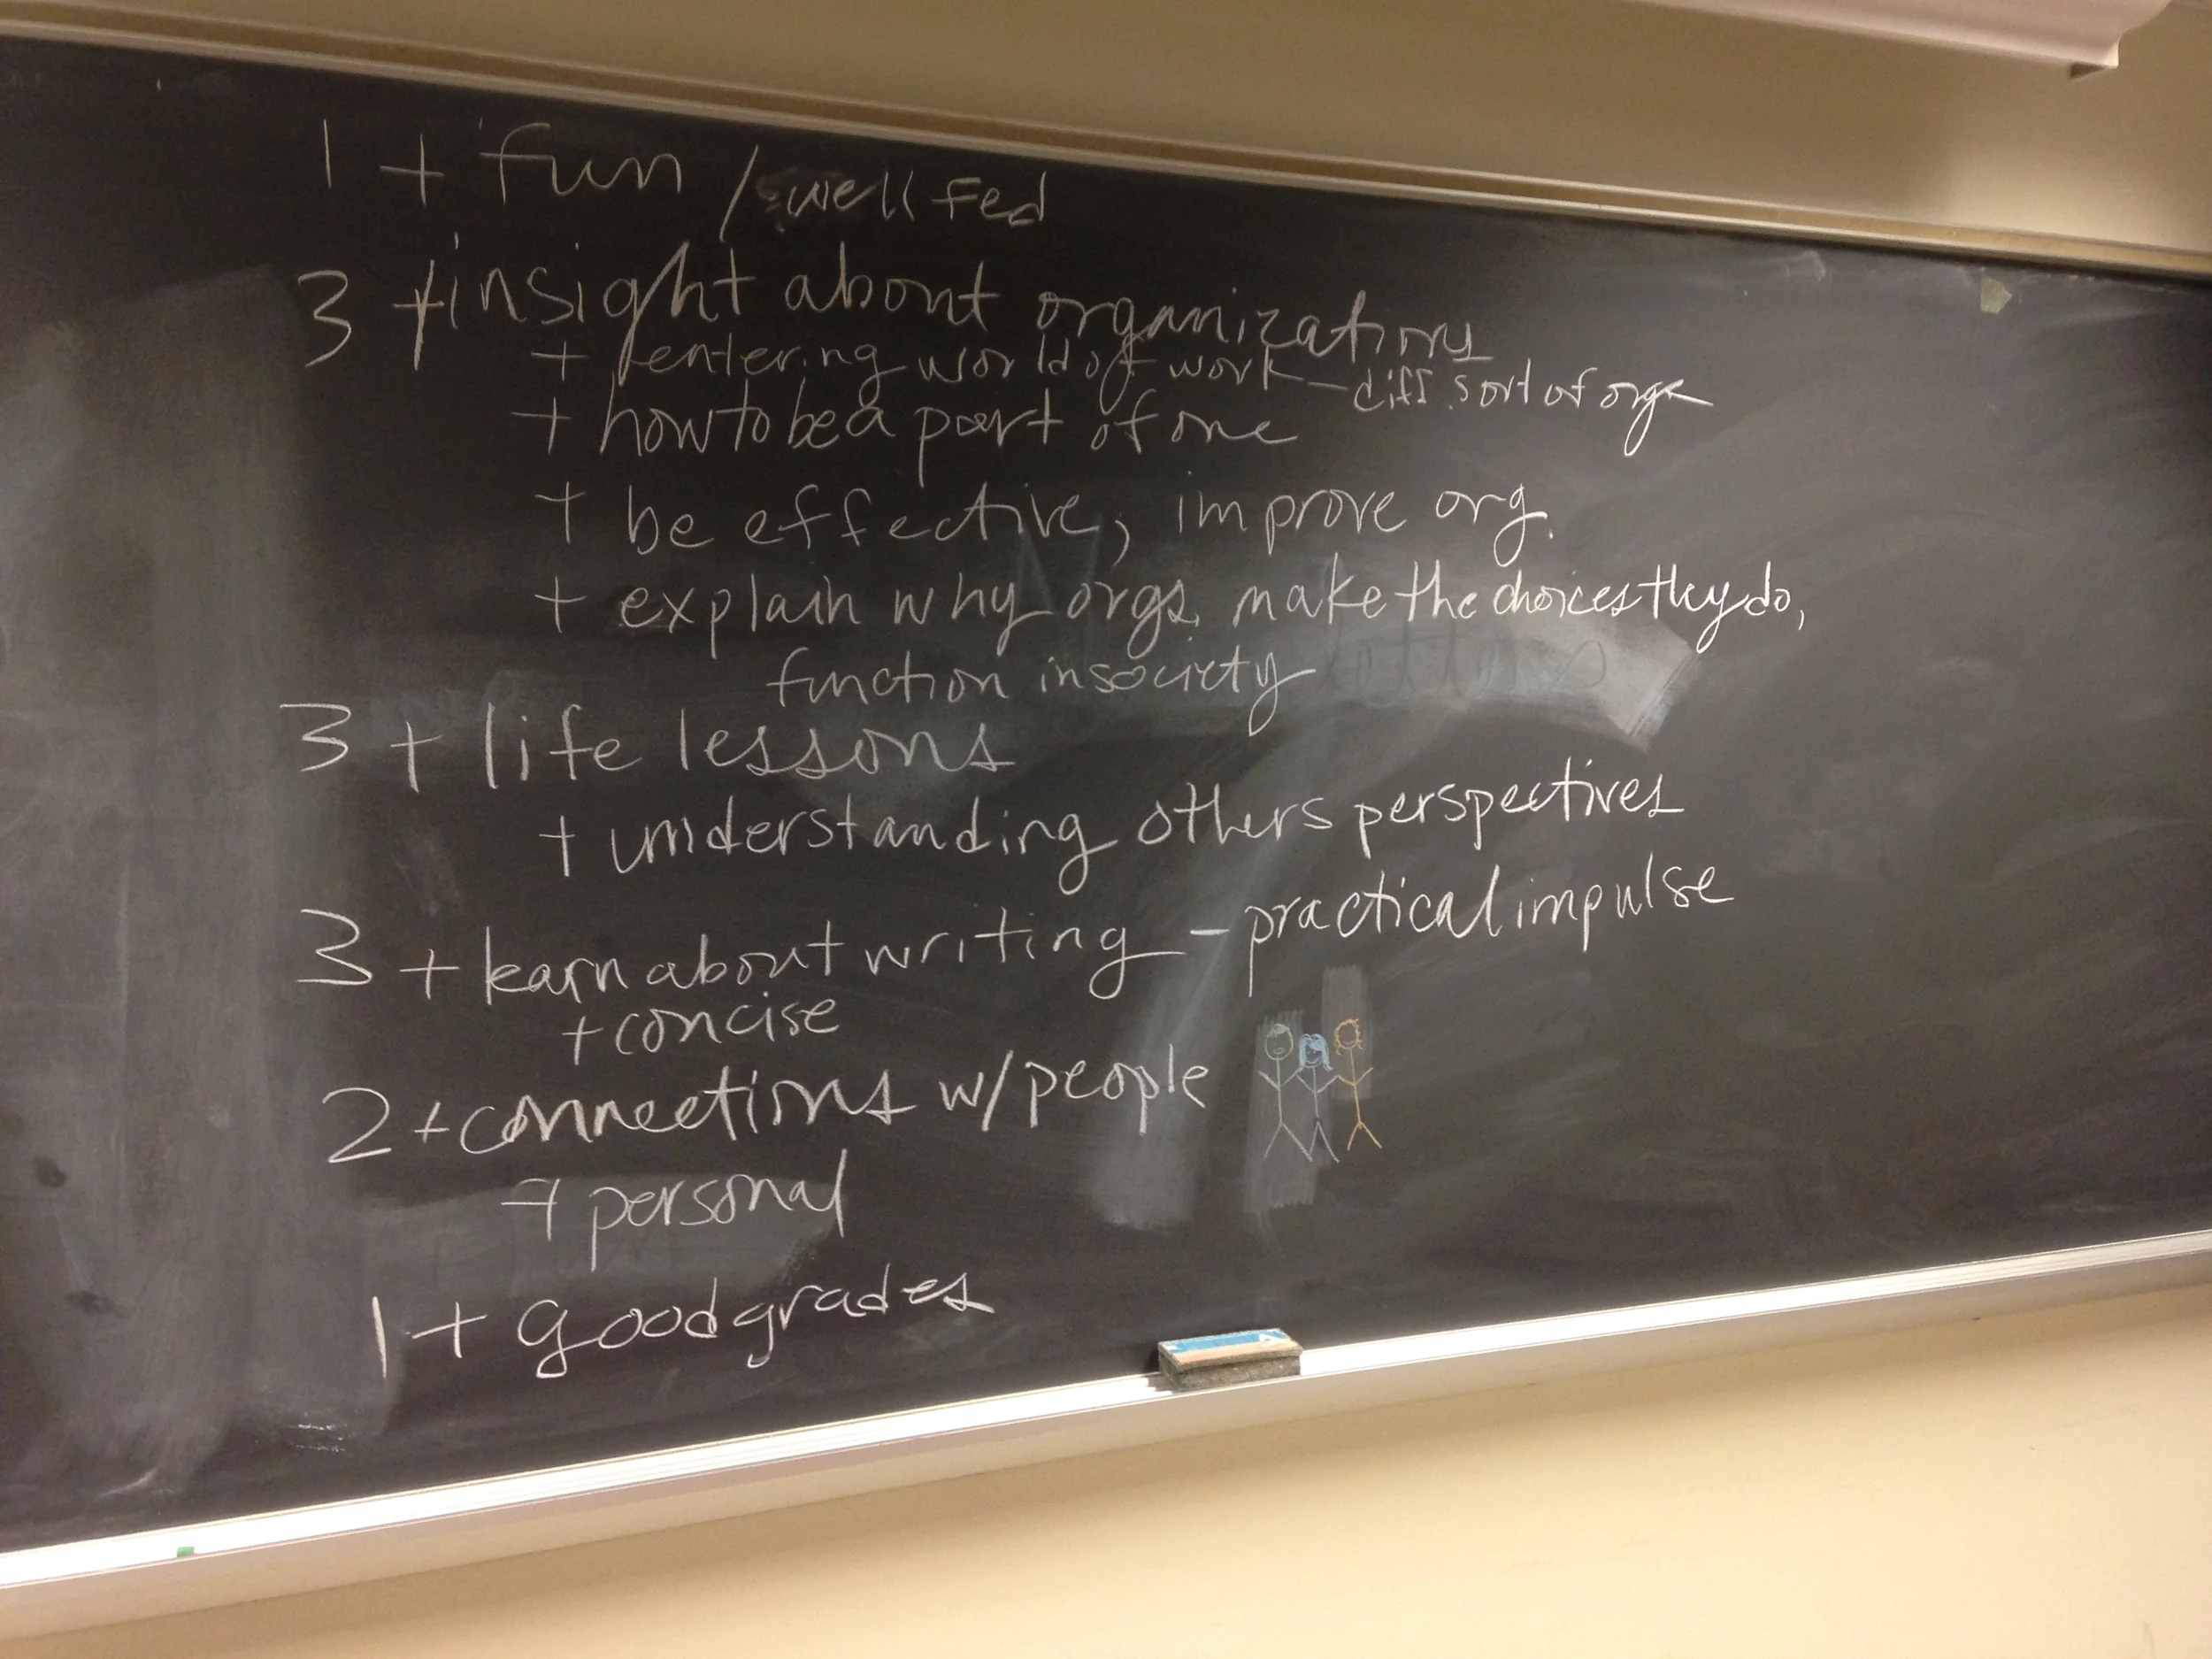 1 + fun / well fed
3 + insight about organizations
+ entering world of work - diff. sort of orgs
+ how to be a part of one
+ be effective, improve org.
+ explain why orgs. make the choices they do,
function in society
3 + life lessons
+ understanding others perspectives
3 + learn about writing - practical impulse
+ concise
2 + connections w/ people
+ personal
1 + good grades